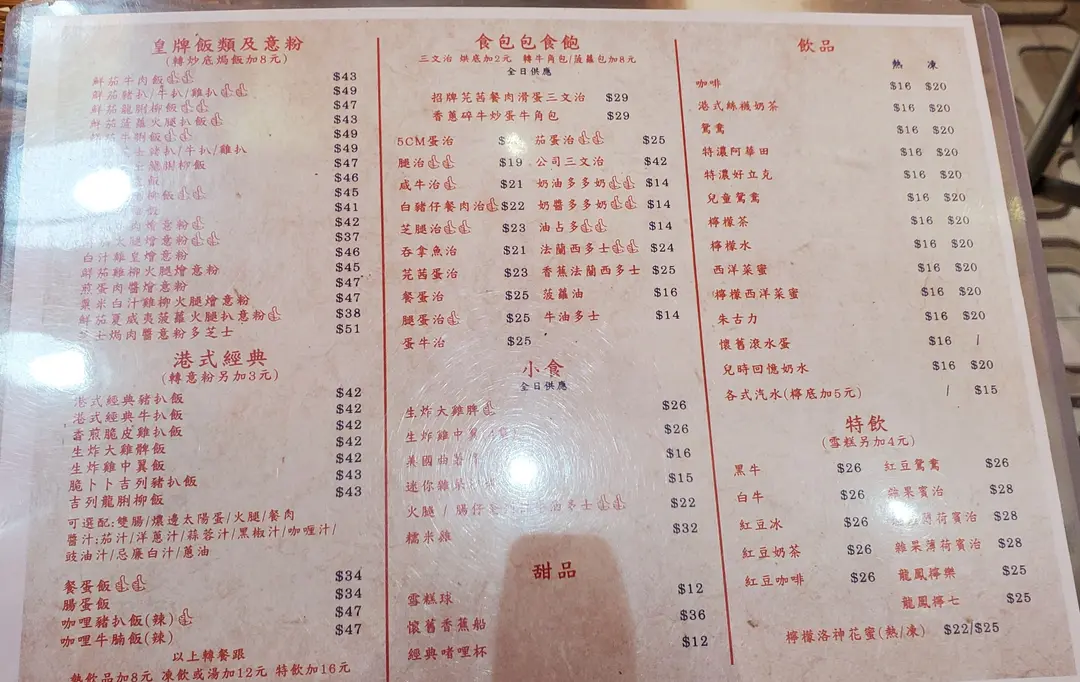 皇牌飯類及意粉
(轉炒底焗飯加8元)
鮮茄牛肉飯 $43
鮮茄豬扒/牛扒/雞扒 $49
鮮茄龍脷柳飯 $47
鮮茄菠蘿火腿扒飯 $43
牛脷飯 $49
豬扒/牛扒/雞扒 $49
龍脷柳飯 $47
飯 $46
柳飯 $45
飯 $41
肉燴意粉 $42
火腿燴意粉 $37
白汁雞皇燴意粉 $46
鮮茄雞柳火腿燴意粉 $45
煎蛋肉醬意粉 $47
粟米白汁雞柳火腿燴意粉 $47
鮮茄夏威夷菠蘿火腿扒意粉 $38
芝士焗肉醬意粉多芝士 $51
港式經典
(轉意粉另加3元)
港式經典豬扒飯 $42
港式經典牛扒飯 $42
香煎脆皮雞扒飯 $42
生炸大雞髀飯 $42
生炸雞中翼飯 $42
脆卜卜吉列豬扒飯 $43
吉列龍脷柳飯 $43
可選配:雙腸/燶邊太陽蛋/火腿/餐肉
醬汁:茄汁/洋蔥汁/蒜蓉汁/黑椒汁/咖喱汁/
豉油汁/忌廉白汁/蔥油
餐蛋飯 $34
腸蛋飯 $34
咖哩豬扒飯(辣) $47
咖哩牛腩飯(辣) $47
以上轉餐跟
熱飲品加8元 凍飲或湯加12元 特飲加16元
食包包食飽
三文治 烘底加2元 轉牛角包/菠蘿包加8元
全日供應
招牌芫茜餐肉滑蛋三文治 $29
香蔥碎牛炒蛋牛角包 $29
5CM蛋治 茄蛋治 $25
腿治 $19 公司三文治 $42
咸牛治 $21 奶油多多奶 $14
白豬仔餐肉治 $22 奶醬多多奶 $14
芝腿治 $23 油占多 $14
吞拿魚治 $21 法蘭西多士 $24
芫茜蛋治 $23 香蕉法蘭西多士 $25
餐蛋治 $25 菠蘿油 $16
腿蛋治 $25 牛油多士 $14
蛋牛治 $25
小食
全日供應
生炸大雞髀 $26
生炸雞中翼 $26
美國曲 $16
迷你雜 $15
火腿/腸仔 油多士 $22
糯米雞 $32
甜品
雪糕球 $12
懷舊香蕉船 $36
經典啫哩杯 $12
飲品
熱 凍
咖啡 $16 $20
港式絲襪奶茶 $16 $20
鴛鴦 $16 $20
特濃阿華田 $16 $20
特濃好立克 $16 $20
兒童鴛鴦 $16 $20
檸檬茶 $16 $20
檸檬水 $16 $20
西洋菜蜜 $16 $20
檸檬西洋菜蜜 $16 $20
朱古力 $16 $20
懷舊滾水蛋 $16 /
兒時回憶奶水 $16 $20
各式汽水(檸底加5元) / $15
特飲
(雪糕另加4元)
黑牛 $26 紅豆鴛鴦 $26
白牛 $26 雜果賓治 $28
紅豆冰 $26 薄荷賓治 $28
紅豆奶茶 $26 雜果薄荷賓治 $28
紅豆咖啡 $26 龍鳳檸樂 $25
龍鳳檸七 $25
檸檬洛神花蜜(熱/凍) $22/$25